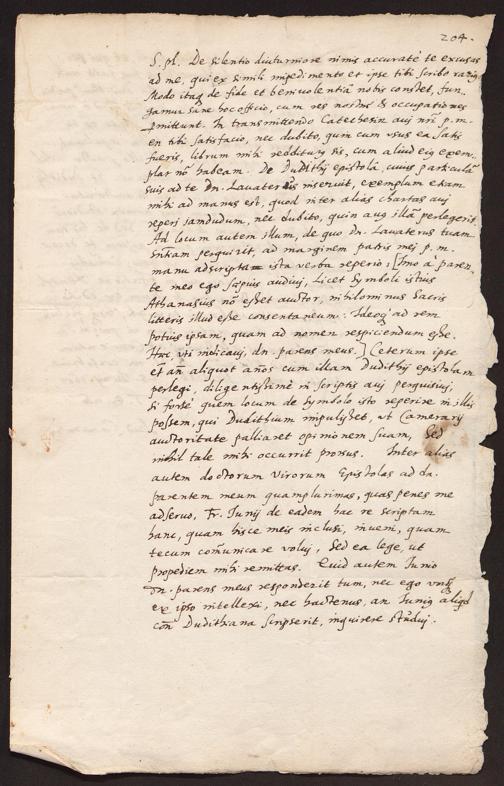 204.
S. pl. De silentio diuturniore nimis accuratè te excusas
ad me, qui ex simili impedimento et ipse tibi scribo rariùs
Modo itaq de fide et benivolentiâ nobis constet, fun-
gamur sanè hoc officio, cum res nostræ & occupationes
permittunt. In transmittendo Catechesin aui nri p. m.
en tibi satisfacio, nec dubito, quin cum usus ea satis
fueris, librum mihi redditurus sis, cum aliud eius exem-
plar nõ habeam. De Dudithij epistolâ, cuius particulã
suis ad te Dn. Lauaterus inseruit, exemplum etiam
mihi ad manus est, quod inter alias chartas aui
reperi iamdudum, nec dubito, quin auus illã perlegerit
Ad locum autem illum, de quo Dn. Lauaterus tuam
sntiam perquirit, ad marginem patris mei p. m.
manu adscripta ista verba reperio: [Imo a paren-
te meo ego sæpius audiui, Licet Symboli istius
Athanasius nõ esset auctor, nihilominus Sacris
litteris illud esse consentaneum: Ideoq ad rem
potius ipsam, quam ad nomen respiciendum esse.
Hæc, uti indicaui, dn. parens meus.] Ceterum ipse
et añ aliquot años cum illam Dudithij epistolam
perlegi, diligentissimè in scriptis aui perquisiui,
si fortè quem locum de Symbolo isto reperire in illis
possem, qui Dudithium impulisset, ut Camerarij
auctoritate palliaret opinionem suam, Sed
nihil tale mihi occurrit prorsus. Inter alias
autem doctorum virorum Epistolas ad dn.
parentem meum quamplurimas, quas penes me
adservo, Fr. Junij de eadem hac re scriptam
hanc, quam hisce meis inclusi, inveni, quam
tecum comũnicare volui, Sed ea lege, ut
propediem mihi remittas. Quid autem Junio
Dn. parens meus responderit tum, nec ego
ex ipso intellexi, nec hactenus, an Junius aliqd
con Dudithiana scripserit, inquirere studui.